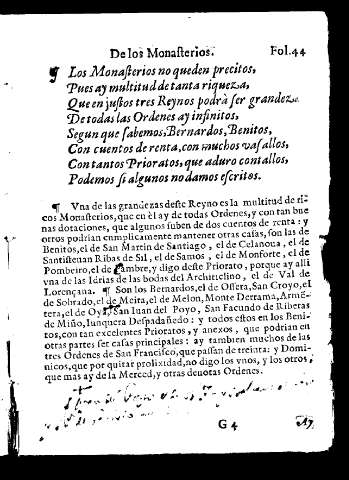 De los Monasterios. Fol. 44
¶ Los Monasterios no queden precitos,
Pues ay multitud de tanta riqueza,
Que en justos tres Reynos podrà ser grandeza
De todas las Ordenes ay infinitos,
Segun que sabemos, Bernardos, Benitos,
Con cuentos de renta, con muchos vasallos,
Con tantos Prioratos, que aduro contallos,
Podemos si algunos no damos escritos.
¶ Vna de las grandezas deste Reyno es la multitud de ri-
cos Monasterios, que en èl ay de todas Ordenes, y con tan bue
nas dotaciones, que algunos suben de dos cuentos de renta: y
otros podrian cumplicamente mantener otras casas, son las de
Benitos, el de San Martin de Santiago, el de Celanoua, el de
Santisteuan Ribas de Sil, el de Samos, el de Monforte, el de
Pombeiro, el de Cambre, y digo deste Priorato, porque ay alli
vna de las Idrias de las bodas del Architiclino, el de Val de
Lorençana. ¶ Son los Bernardos, el de Ossera, San Croyo, el
de Sobrado, el de Meira, el de Melon, Monte Derrama, Arme-
tera, el de Oya, San Iuan del Poyo, San Facundo de Riberas
de Miño, Iunquera Despadañedo: y todos estos en los Beni-
tos, con tan excelentes Prioratos, y anexos, que podrian en
otras partes ser casas principales: ay tambien muchos de las
tres Ordenes de San Francisco, que passan de treinta: y Domi-
nicos, que por quitar prolixidad, no digo los vnos, y los otros,
que mas ay de la Merced, y otras deuotas Ordenes.
G 4 Ay